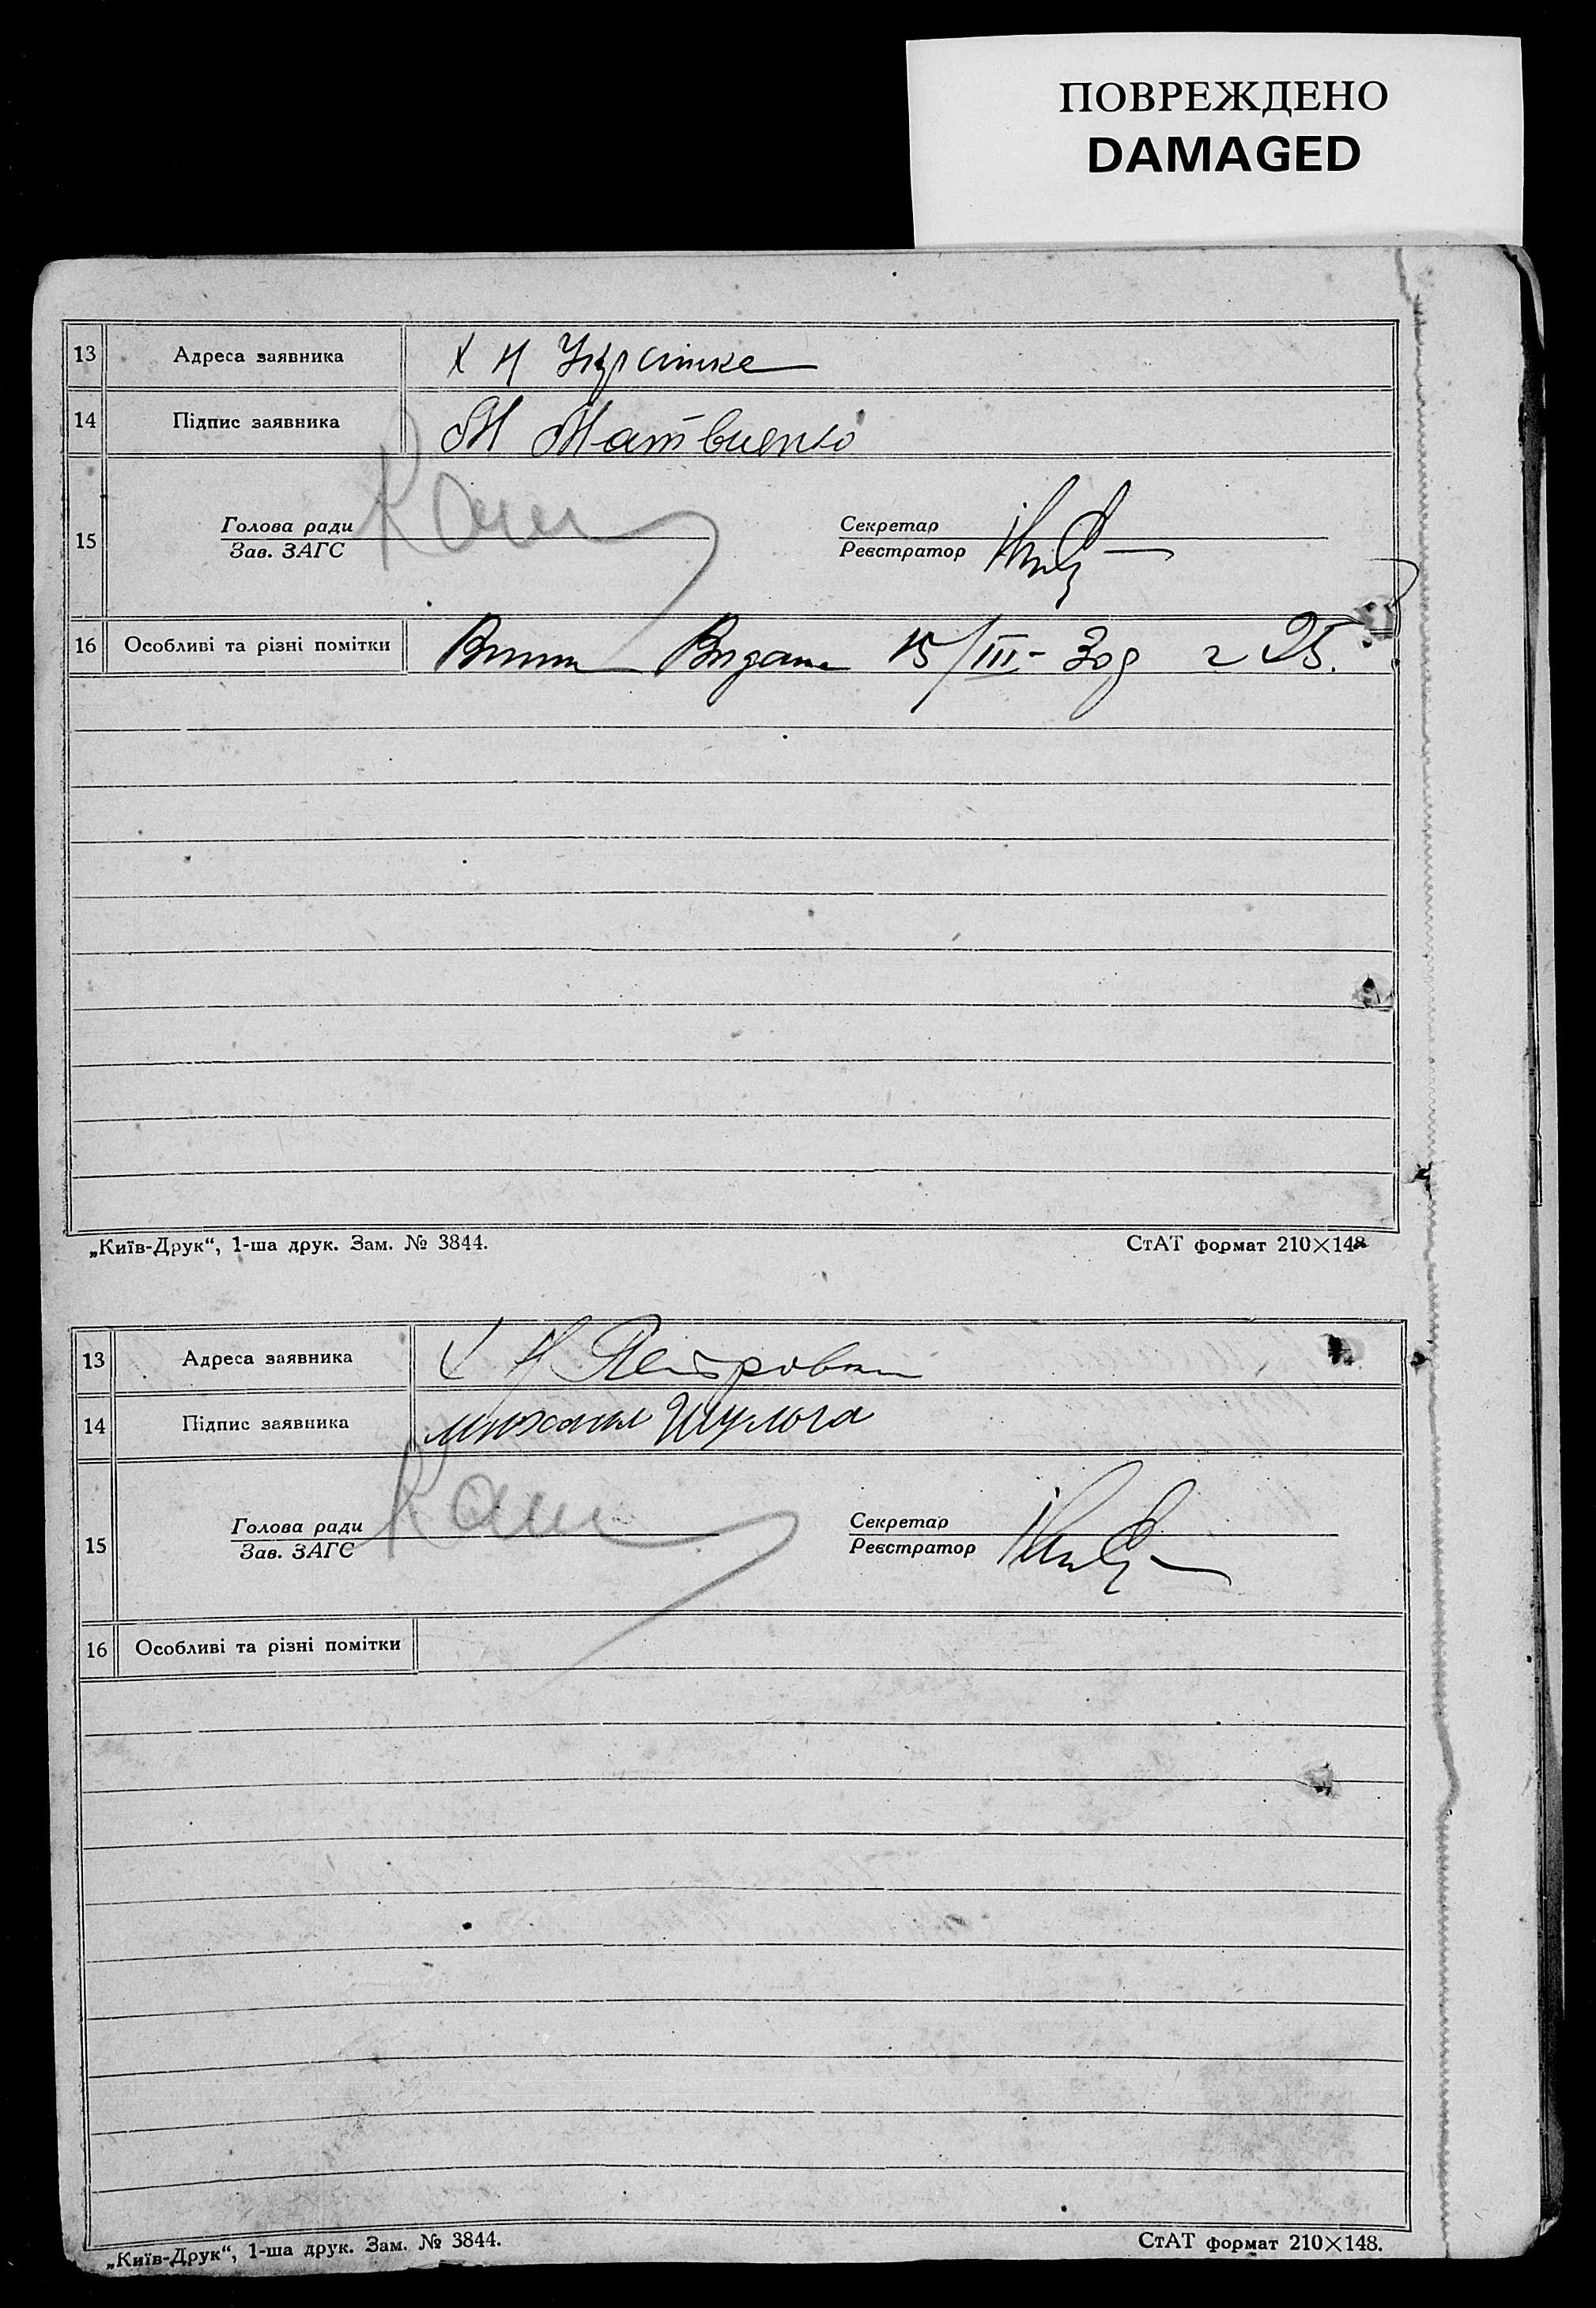 ПОВРЕЖДЕНО
DAMAGED
13 Адреса заявника Х Н
14 Підпис заявника М Матвиенко
15 Голова ради Секретар
Зав. ЗАГС Реєстратор
16 Особливі та різні помітки Видана 15/III- г 25.
„Київ-Друк“, 1-ша друк. Зам. № 3844. СтАТ формат 210×148
13 Адреса заявника Х Н Петровка
14 Підпис заявника михаил Шулога
15 Голова ради Секретар
Зав. ЗАГС Реєстратор
16 Особливі та різні помітки
„Київ-Друк“, 1-ша друк. Зам. № 3844. СтАТ формат 210×148.